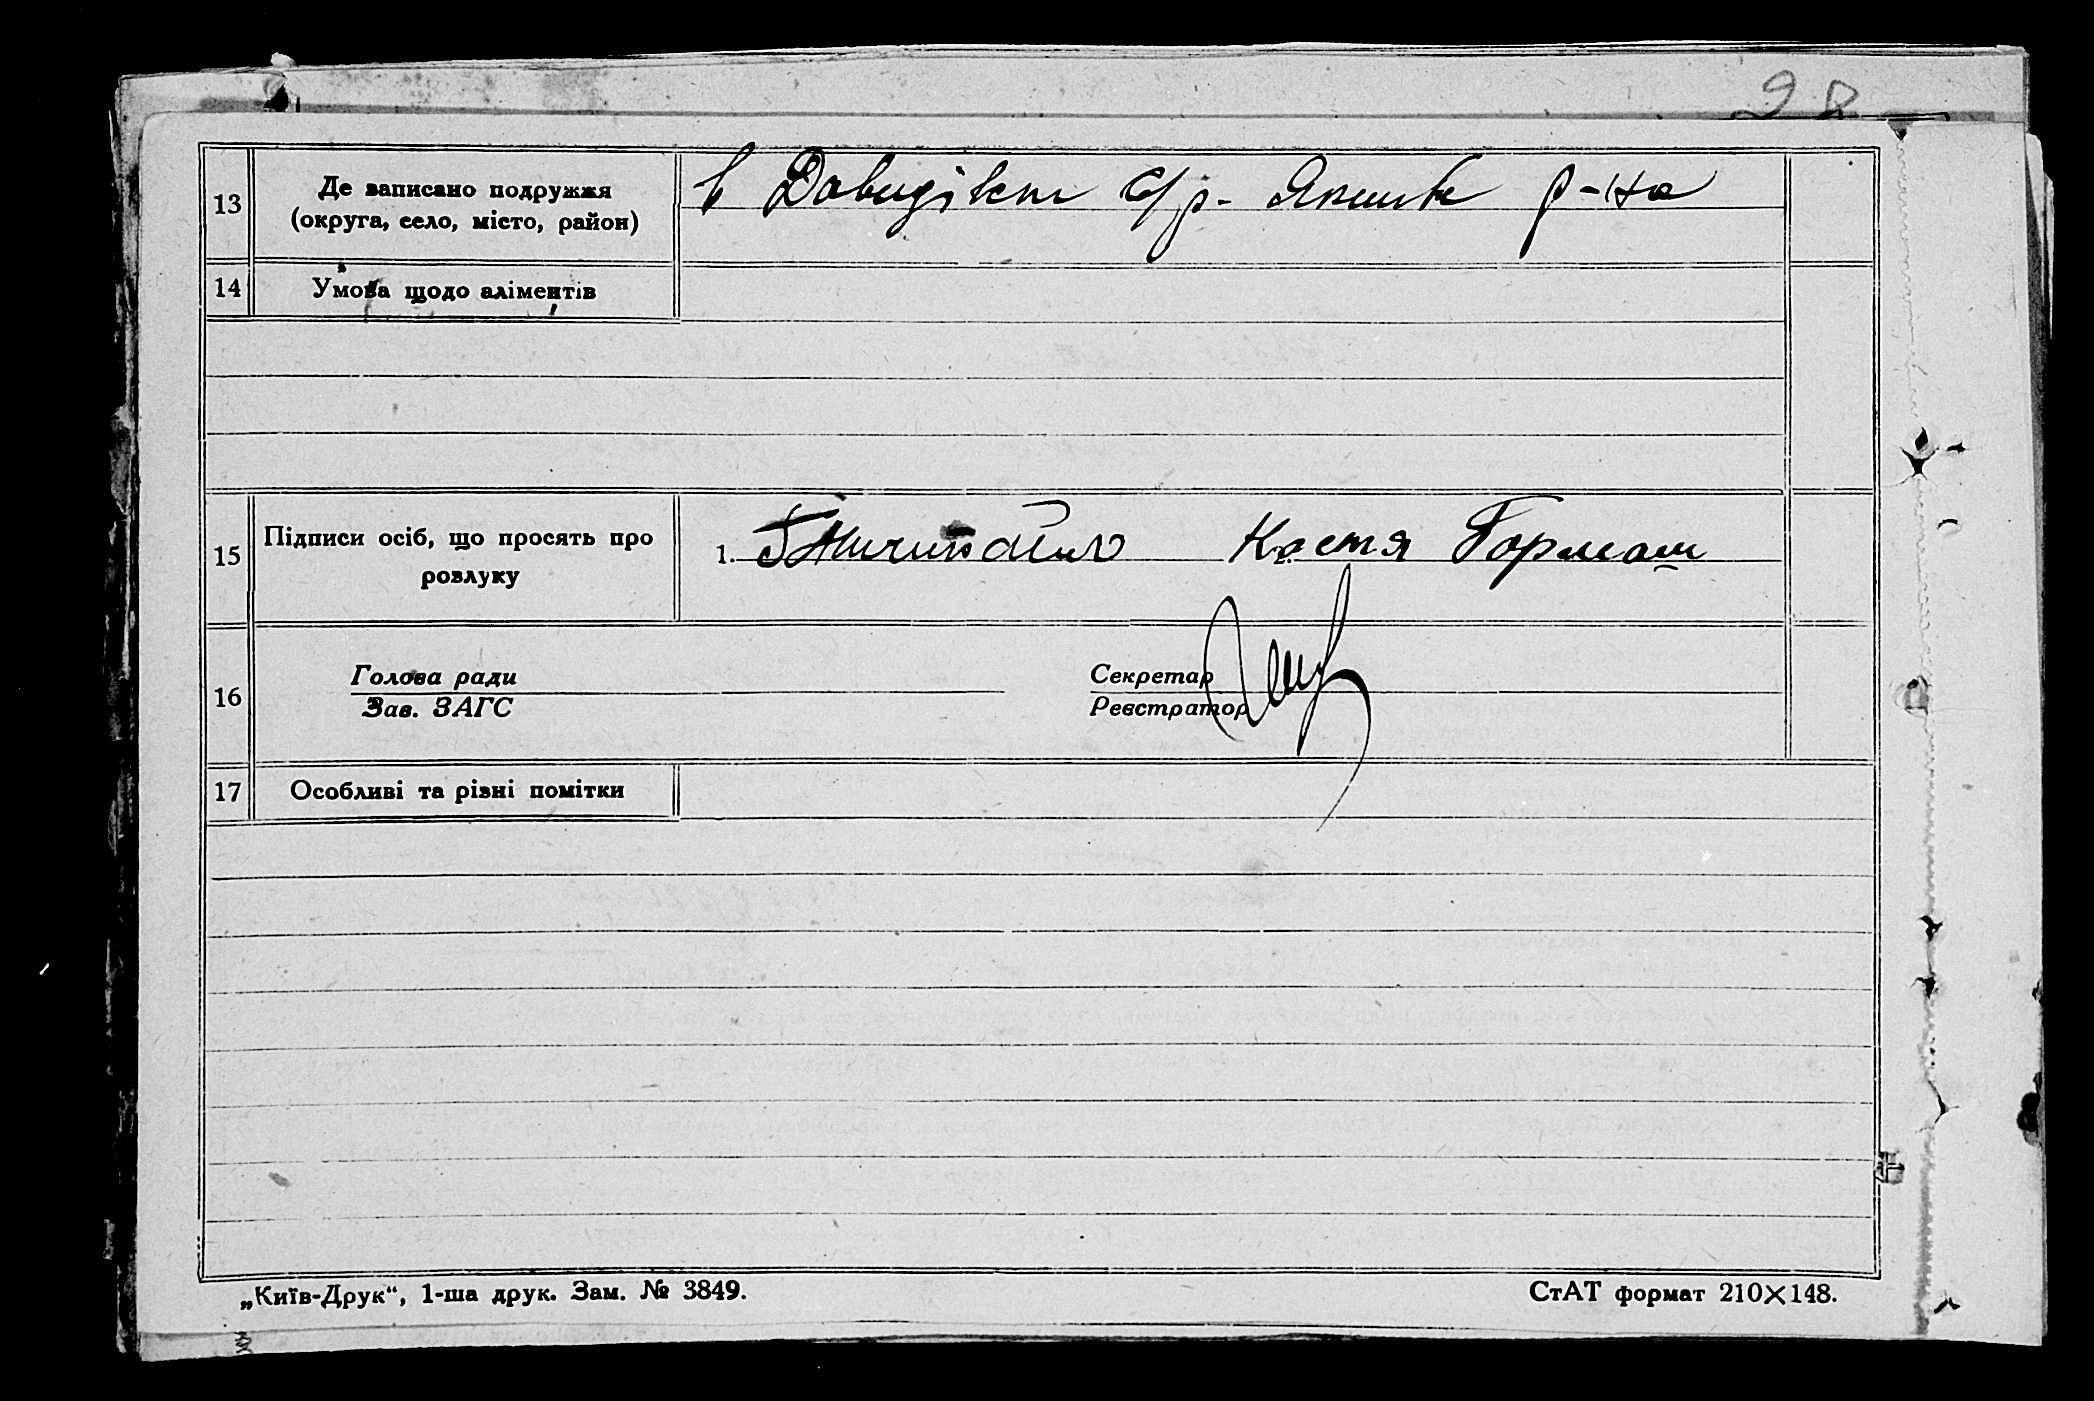 28
13
Де записано подружжя
(округа, село, місто, район)
в Давидівкт с/р. р-на
14
Умова щодо аліментів
15
Підписи осіб, що просять про
розлуку
1.
2.
Костя Гормаш
16
Голова ради
Зав. ЗАГС
Секретар
Реєстратор
17
Особливі та різні помітки
„Київ-Друк“, 1-ша друк. Зам. № 3849.
СтАТ формат 210×148.